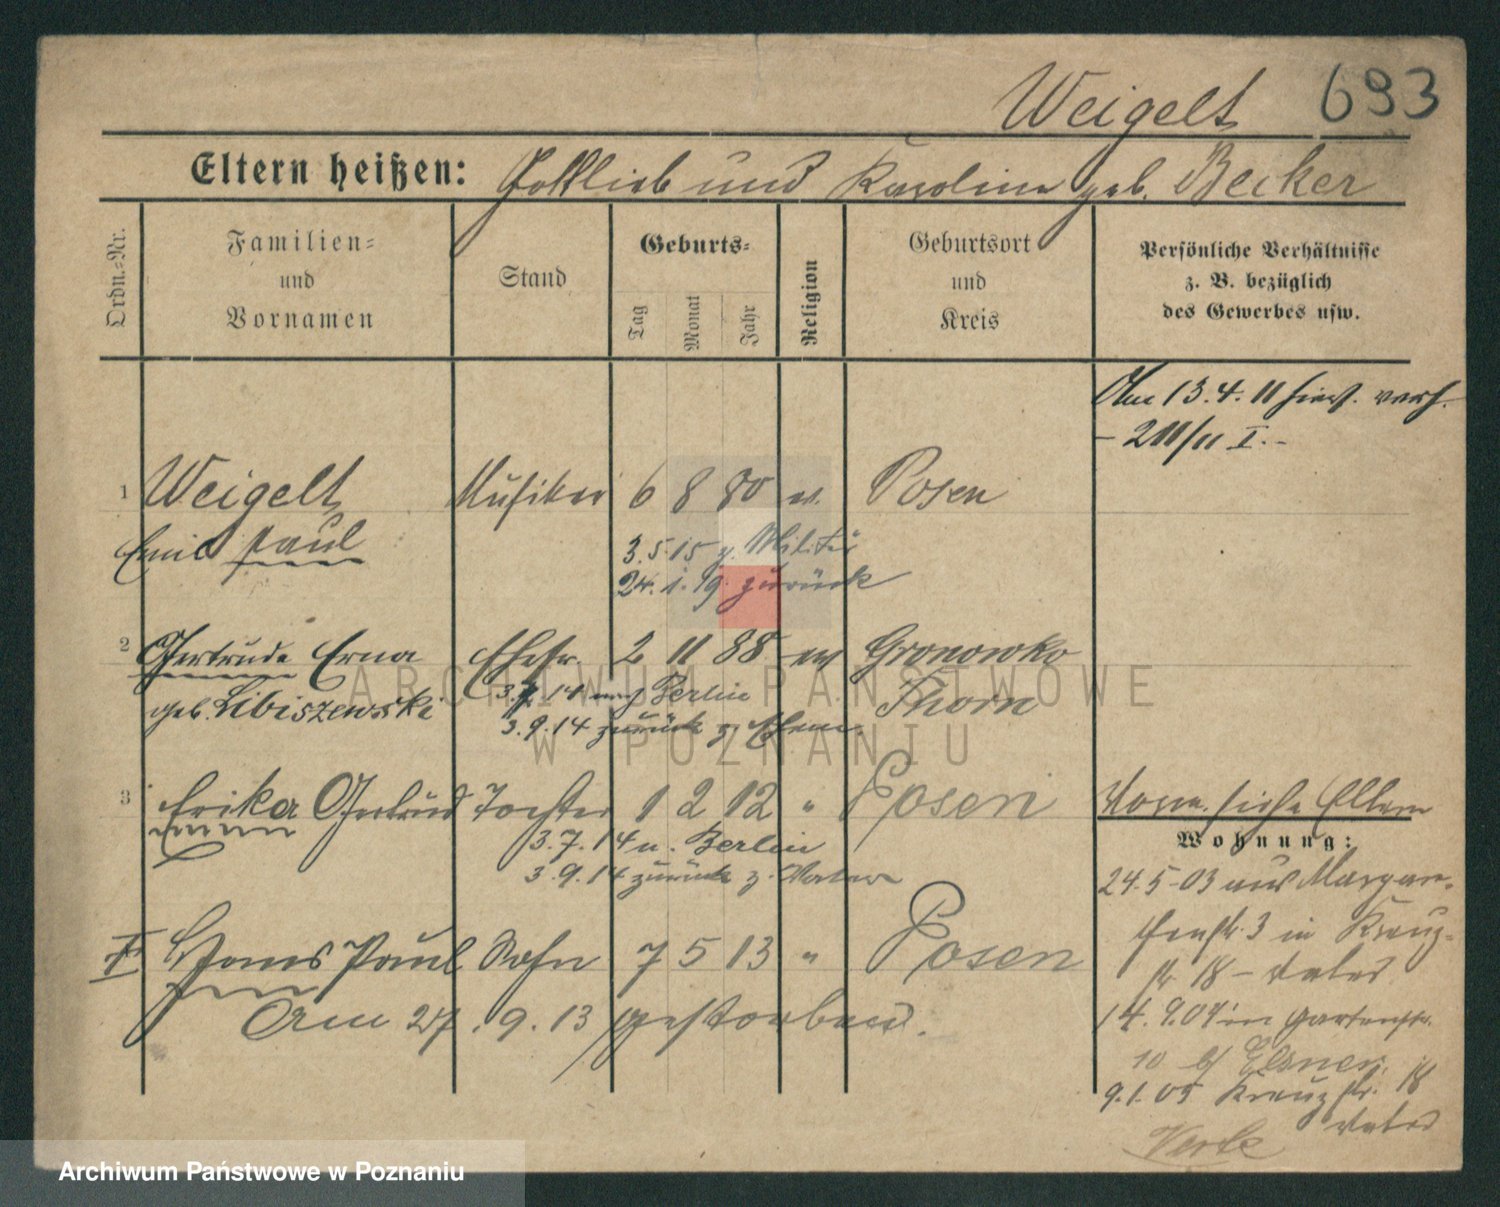 Weigelt 693
Eltern heißen: Gottlieb und Karoline geb. Becker
Ordn.-Nr.
Familien-
und
Vornamen
Stand
Geburts-
Tag
Monat
Jahr
Religion
Geburtsort
und
Kreis
Persönliche Verhältnisse
z. B. bezüglich
des Gewerbes usw.
Am 13.4.11 hier verh.
- 211/11 I. -
1 Weigelt Musiker 6 8 80 ev. Posen
Emil Paul
3.5.15 z. Militär
24.1.19. zurück
2 Gertrude Erna Ehefr. 2 11 88 ev Gronowko
geb. Libiszewski Thorn
3.7.14 nach Berlin
3.9.14 zurück z. Ehem.
3 Erika Gertrud Tochter 1 2 12 " Posen
3.7.14 n. Berlin
3.9.14 zurück z. Vater
siehe Eltern
Wohnung:
24.5.03 aus Margare-
thenstr. 3 in Kreuz-
str 18 - Vater
† Hans Paul Sohn 7 5 13 " Posen
Am 27.9.13 gestorben.
14.9.04 in Gartenstr.
10 b/ Elsner.
9.1.05 Kreuzstr. 18
Vater
ARCHIWUM PAŃSTWOWE
W POZNANIU
Archiwum Państwowe w Poznaniu